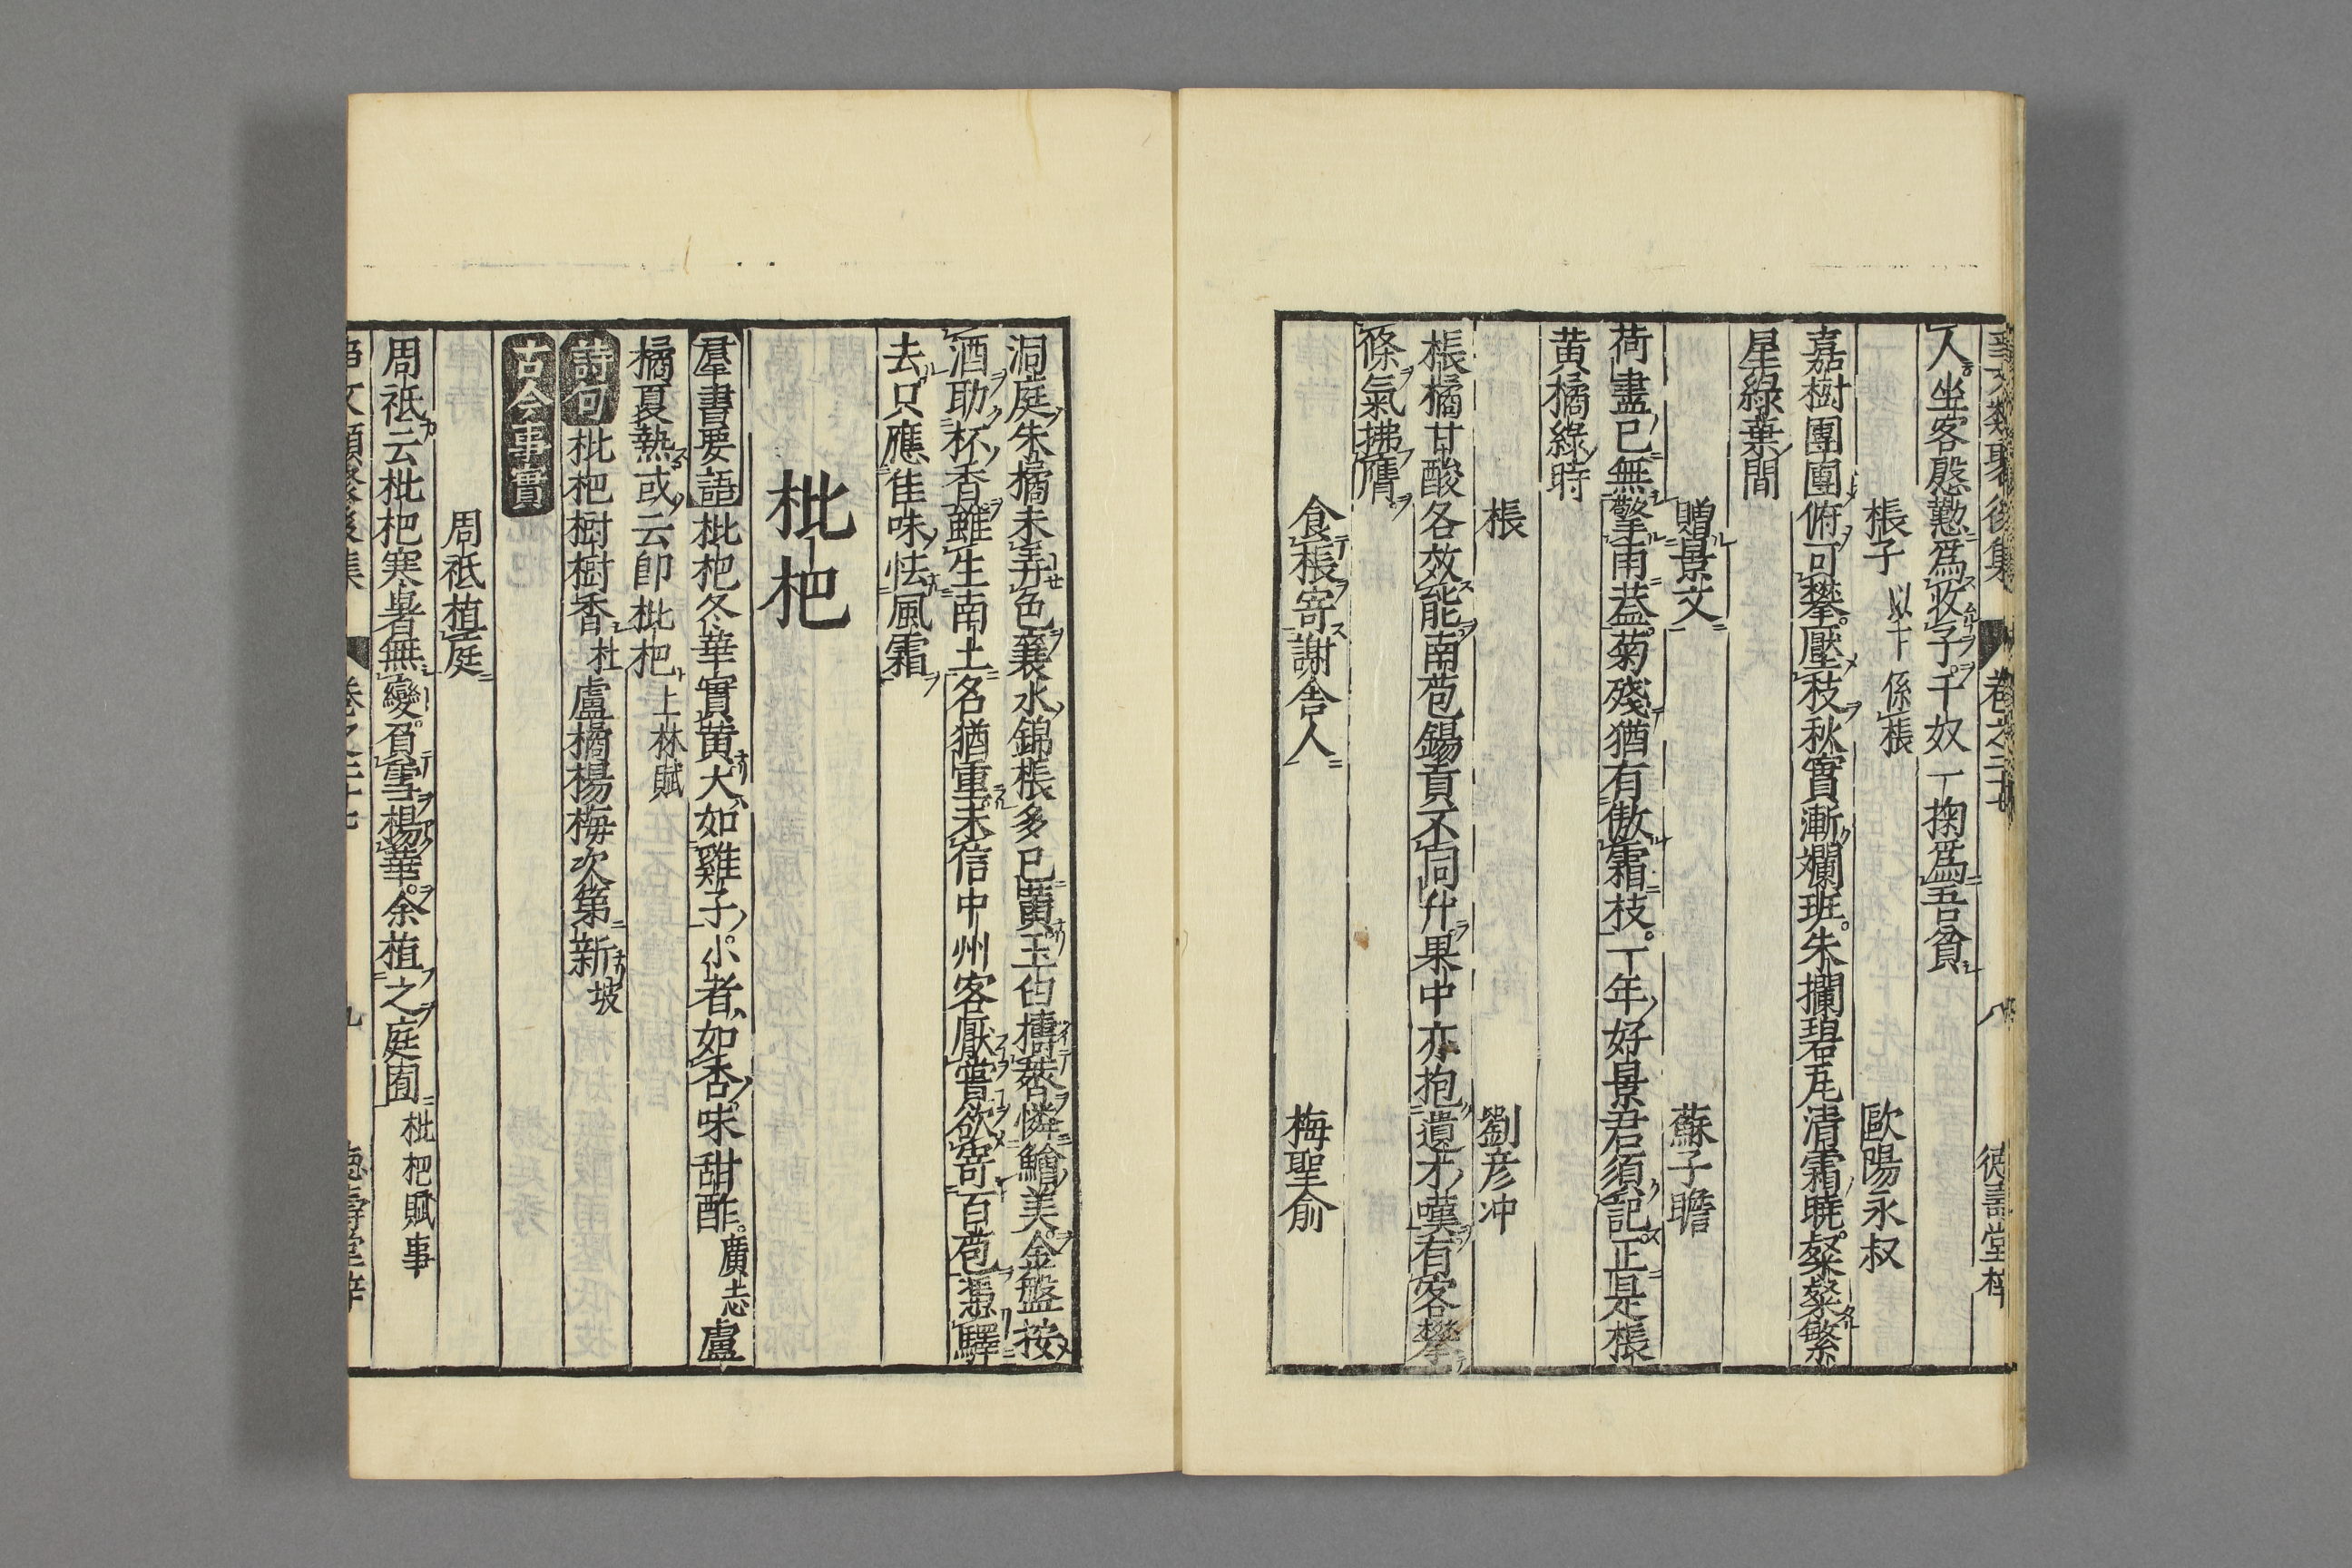 事文類聚後集 卷之二十七 八 德壽堂梓
人坐客慇懃爲收子千奴一掬爲吾貧
棖子 以下係棖 歐陽永叔
嘉樹團團俯可攀壓枝秋實漸斕班朱攔碧瓦清霜曉粲粲繁
星綠葉間
贈景文 蘇子瞻
荷盡已無擎雨葢菊殘猶有傲霜枝一年好景君須記正是棖
黄橘綠時
棖 劉彦冲
棖橘甘酸各效能南苞錫貢不同升果中亦抱遺才嘆有客攀
條氣拂膺
食棖寄謝舍人 梅聖俞
洞庭朱橘未弄色襄水錦棖多已黄玉臼擣虀憐鱠美金盤按
酒助杯香雖生南土名猶重未信中州客厭嘗欲寄百苞憑驛
去只應佳味怯風霜
枇杷
羣書要語枇杷冬華實黄大如雞子小者如杏味甜酢廣志盧
橘夏熱或云卽枇杷上林賦
詩句枇杷樹樹香杜盧橘楊梅次第新坡
古今事實
周祗植庭
周祗云枇杷寒暑無變負雪楊華余植之庭囿枇杷賦事
事文類聚後集 卷之二十七 九 德壽堂梓